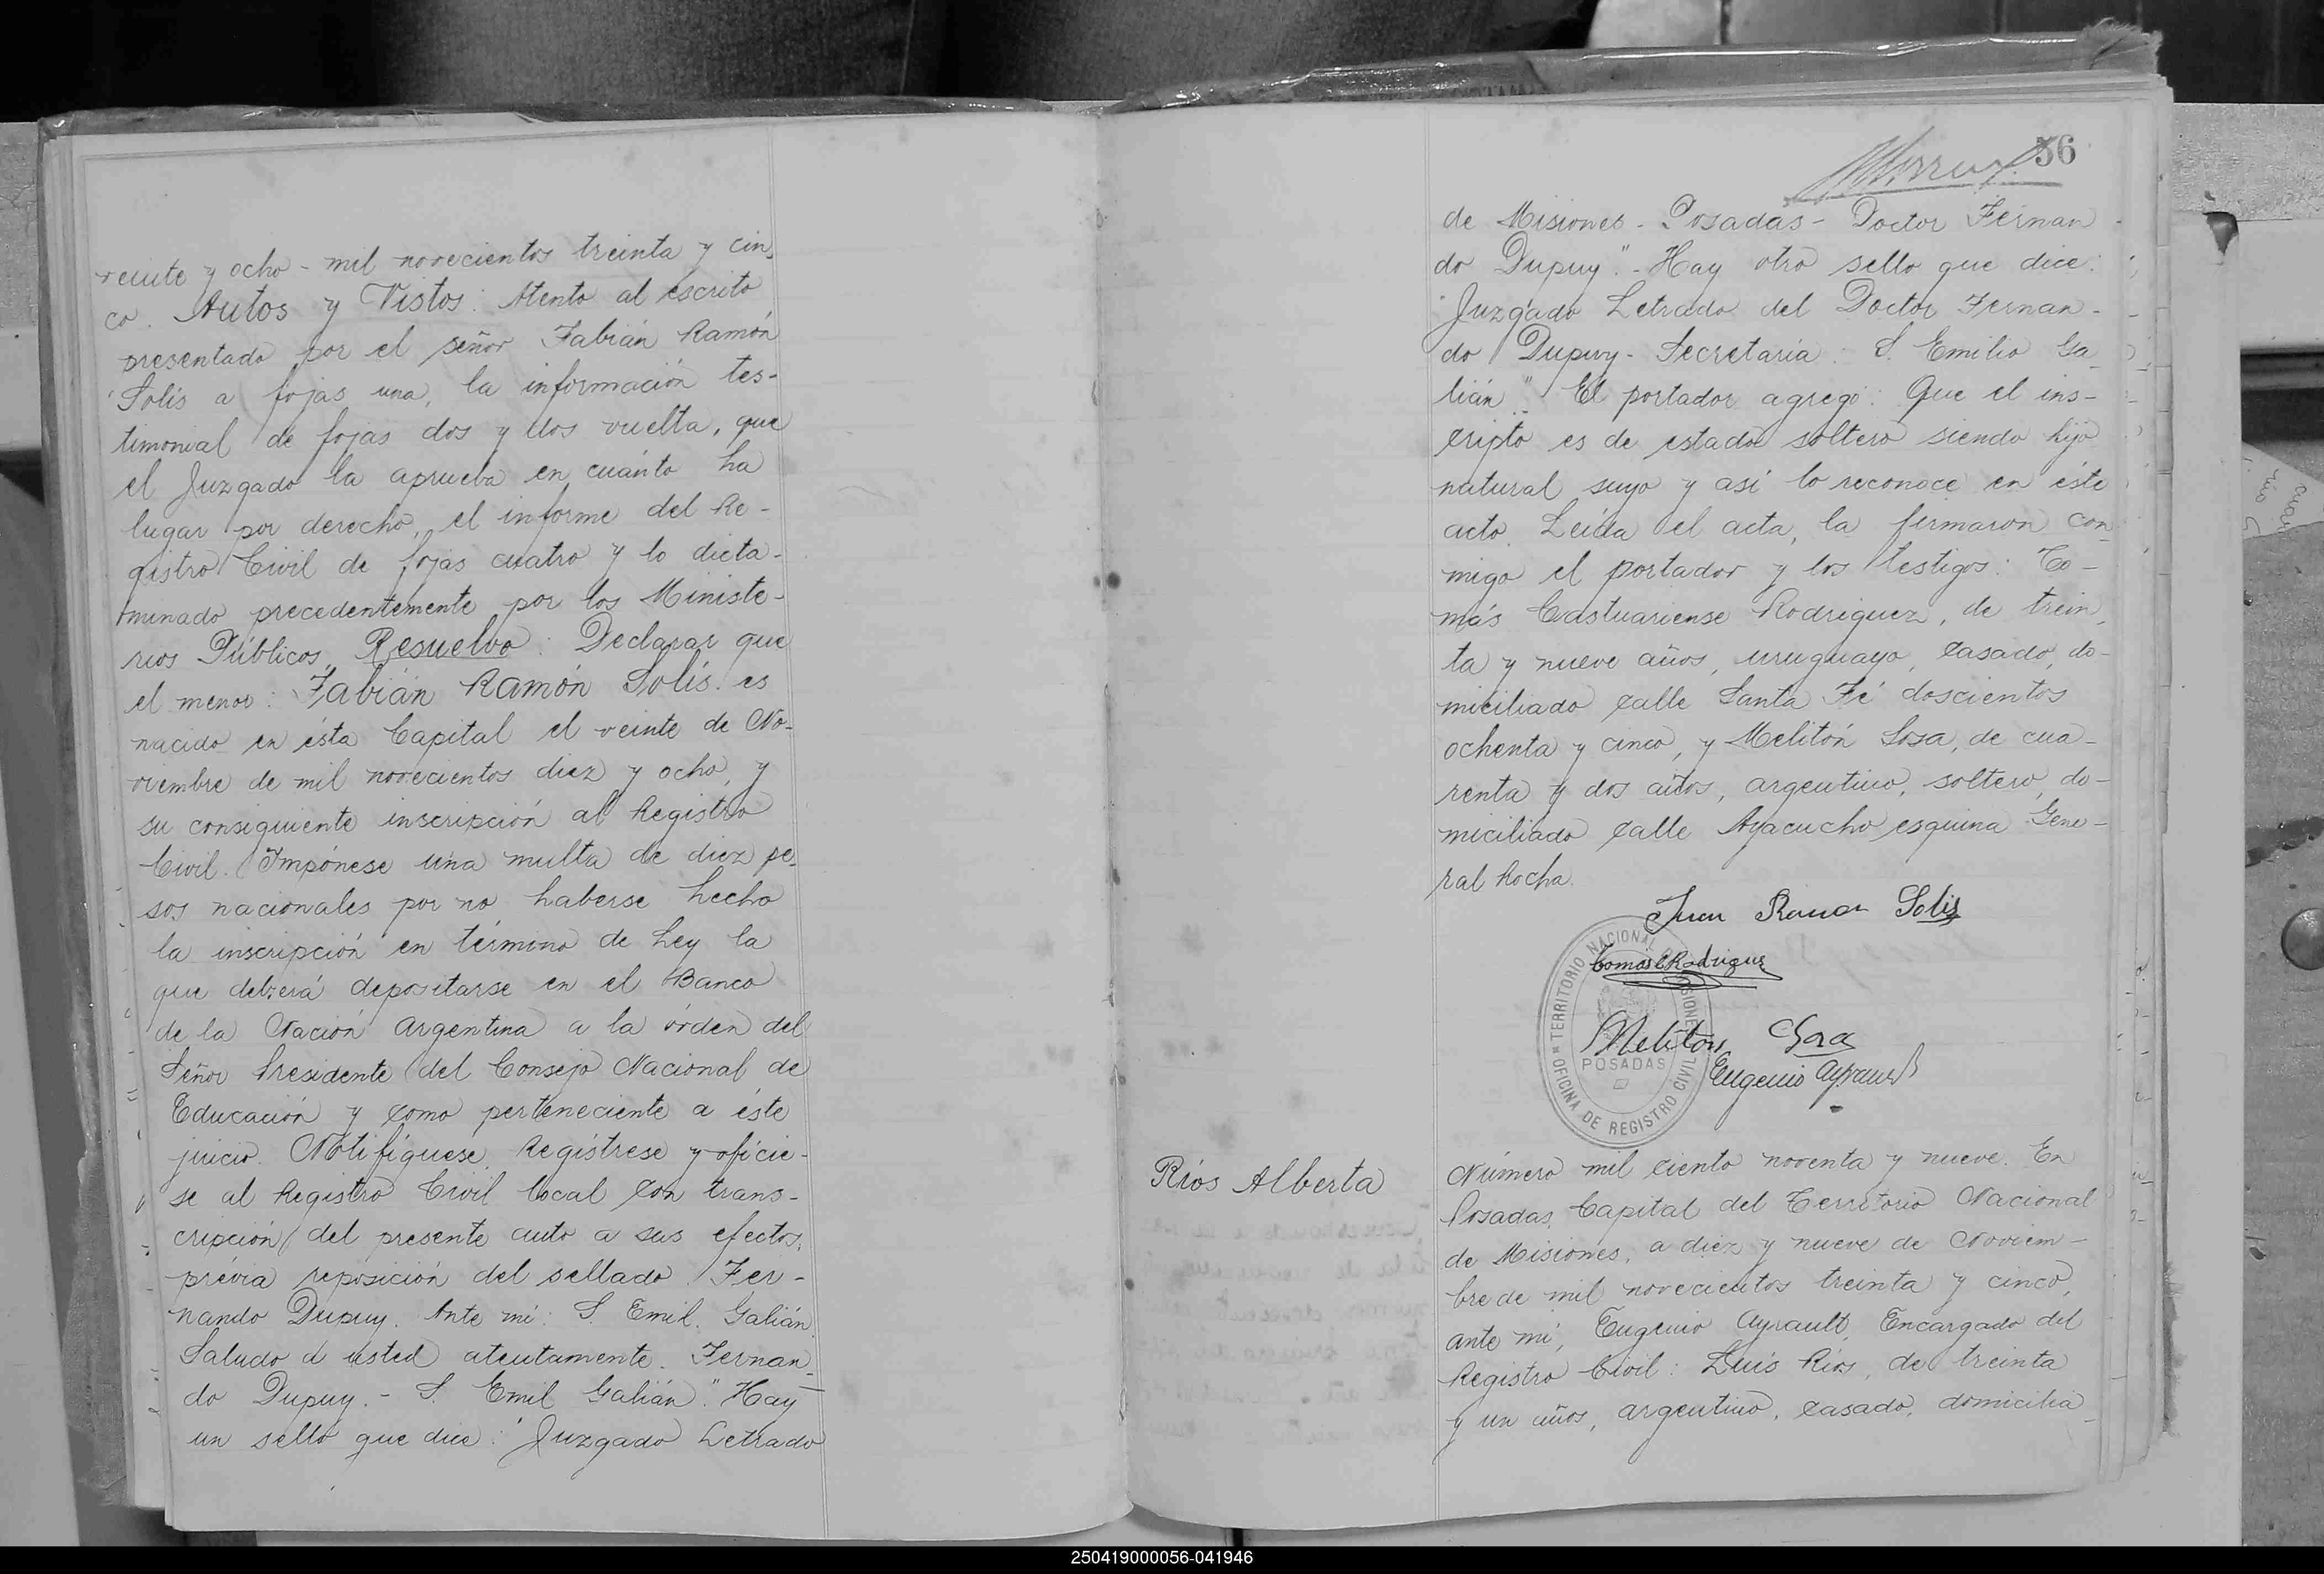 veinte y ocho - mil novecientos treinta y cin
co. Autos y Vistos: Atento al escrito
presentado por el señor Fabián Ramón
Solís a fojas una, la información tes-
timonial de fojas dos y dos vuelta, que
el Juzgado la aprueba en cuánto ha
lugar por derecho, el informe del Re-
gistro Civil de fojas cuatro y lo dicta-
minado precedentemente por los Ministe-
rios Públicos, Resuelvo: Declarar que
el menor: Fabián Ramón Solís. es
nacido en ésta Capital el veinte de No-
viembre de mil novecientos diez y ocho, y
su consiguiente inscripción al Registro
Civil. Impónese una multa de diez pe-
sos nacionales por no haberse hecho
la inscripción en término de Ley la
que deberá depositarse en el Banco
de la Nación Argentina a la órden del
Señor Presidente del Consejo Nacional de
Educación y como perteneciente a éste
juicio. Notifíquese, Regístrese y ofície-
se al Registro Civil local con trans-
cripción del presente auto a sus efectos,
prévia reposición del sellado. Fer-
nando Dupuy. Ante mí: S. Emil. Galián.
Saludo á usted atentamente. Fernan-
do Dupuy. - S. Emil Galián". Hay
un sello que dice: "Juzgado Letrado
56
de Misiones - Posadas - Doctor Fernan-
do Dupuy". - Hay otro sello que dice:
"Juzgado Letrado del Doctor Fernan-
do Dupuy - Secretaría: S. Emilio Ga-
lián". El portador agregó: Que el ins-
cripto es de estado soltero siendo hijo
natural suyo y así lo reconoce en éste
acto. Leída el acta, la firmaron con-
migo el portador y los testigos: To-
más Castuariense Rodriguez, de trein-
ta y nueve años, uruguayo, casado, do-
miciliado calle Santa Fé doscientos
ochenta y cinco, y Melitón Sosa, de cua-
renta y dos años, argentino, soltero, do-
miciliado calle Ayacucho esquina Gene-
ral Rocha.
Juan Ramon Solis
Tomas C Rodriguez
Meliton Sosa
Eugenio Ayrault
OFICINA DE REGISTRO CIVIL
TERRITORIO NACIONAL DE MISIONES
POSADAS
Ríos Alberta
Número mil ciento noventa y nueve. En
Posadas, Capital del Territorio Nacional
de Misiones, a diez y nueve de Noviem-
bre de mil novecientos treinta y cinco,
ante mí, Eugenio Ayrault, Encargado del
Registro Civil: Luis Ríos, de treinta
y un años, argentino, casado, domicilia-
250419000056-041946